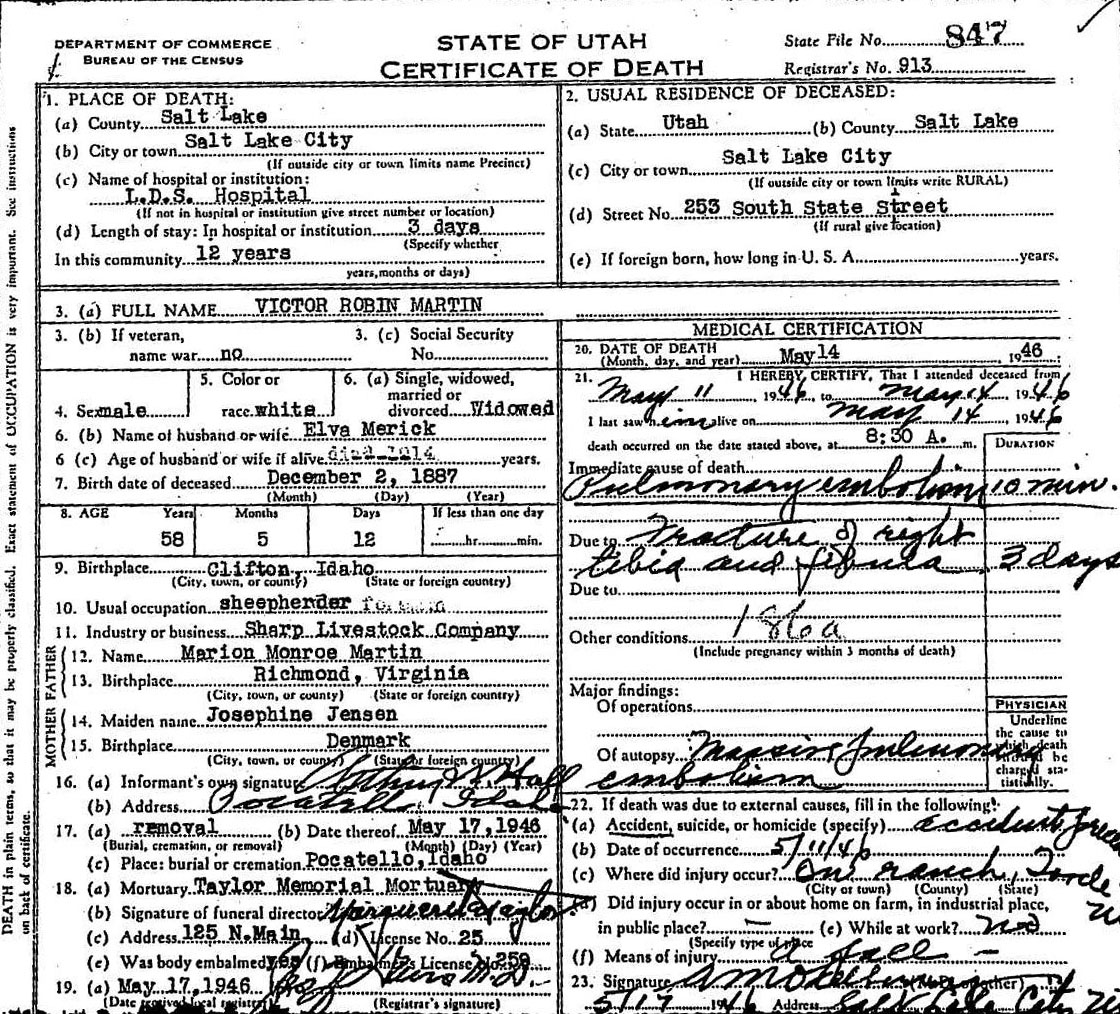 847
DEPARTMENT OF COMMERCE
BUREAU OF THE CENSUS
STATE OF UTAH
CERTIFICATE OF DEATH
State File No. 847
Registrar's No. 913
1. PLACE OF DEATH:
(a) County Salt Lake
(b) City or town Salt Lake City
(If outside city or town limits name Precinct)
(c) Name of hospital or institution:
L.D.S. Hospital
(If not in hospital or institution give street number or location)
(d) Length of stay: In hospital or institution 3 days
(Specify whether
In this community 12 years
years, months or days)
2. USUAL RESIDENCE OF DECEASED:
(a) State Utah (b) County Salt Lake
(c) City or town Salt Lake City
(If outside city or town limits write RURAL)
(d) Street No. 253 South State Street
(If rural give location)
(e) If foreign born, how long in U. S. A. years.
3. (a) FULL NAME VICTOR ROBIN MARTIN
3. (b) If veteran, name war no
3. (c) Social Security No.
4. Sex male
5. Color or race white
6. (a) Single, widowed, married or divorced Widowed
6. (b) Name of husband or wife Elva Merick
6 (c) Age of husband or wife if alive died 1914 years.
7. Birth date of deceased December 2, 1887
(Month) (Day) (Year)
8. AGE Years Months Days If less than one day
58 5 12 hr. min.
9. Birthplace Clifton, Idaho
(City, town, or county) (State or foreign country)
10. Usual occupation sheepherder
11. Industry or business Sharp Livestock Company
FATHER
12. Name Marion Monroe Martin
13. Birthplace Richmond, Virginia
(City, town, or county) (State or foreign country)
MOTHER
14. Maiden name Josephine Jensen
15. Birthplace Denmark
(City, town, or county) (State or foreign country)
16. (a) Informant's own signature Arthur Hall
(b) Address Pocatello, Idaho
17. (a) removal (b) Date thereof May 17, 1946
(Burial, cremation, or removal) (Month) (Day) (Year)
(c) Place: burial or cremation Pocatello, Idaho
18. (a) Mortuary Taylor Memorial Mortuary
(b) Signature of funeral director Marguerite Taylor
(c) Address 125 N.Main (d) License No. 25
(e) Was body embalmed yes (f) Embalmer's License No. 259
19. (a) May 17, 1946
(Date received local registrar) (Registrar's signature)
MEDICAL CERTIFICATION
20. DATE OF DEATH
(Month, day, and year) May 14, 1946
21. I HEREBY CERTIFY, That I attended deceased from
May 11, 1946, to May 14 1946
I last saw him alive on May 14, 1946
death occurred on the date stated above, at 8:30 A. m.
DURATION
Immediate cause of death
Pulmonary embolism 10 min.
Due to Fracture of right
tibia and fibula 3 days
Due to
Other conditions 186a
(Include pregnancy within 3 months of death)
Major findings:
Of operations
Of autopsy Massive pulmonary
embolism
PHYSICIAN
Underline
the cause to
which death
should be
charged sta-
tistically.
22. If death was due to external causes, fill in the following:
(a) Accident, suicide, or homicide (specify) accident
(b) Date of occurrence 5/11/46
(c) Where did injury occur? On ranch,
(City or town) (County) (State)
(d) Did injury occur in or about home on farm, in industrial place,
in public place? — (e) While at work? no
(Specify type of place
(f) Means of injury A fall —
23. Signature (M.D. or other)
5/17 1946 Address Salt Lake City
DEATH in plain terms, so that it may be properly classified. Exact statement of OCCUPATION is very important. See instructions
on back of certificate.